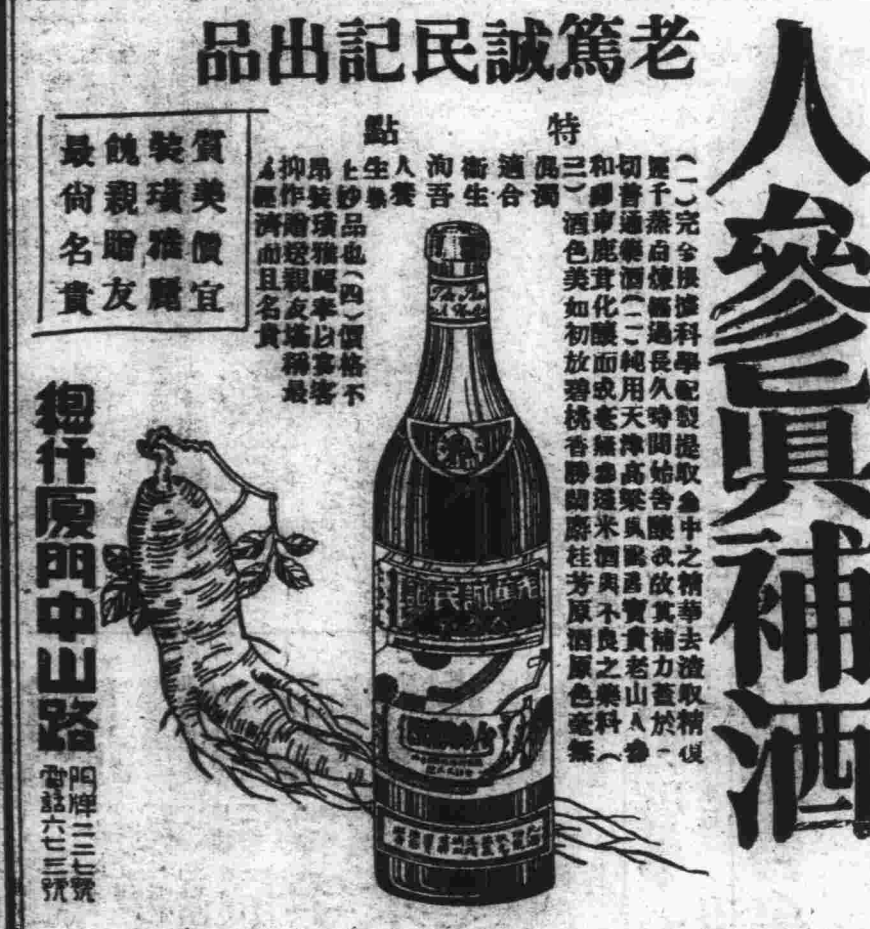 人參眞補酒
老篤誠民記出品
特點
(一)完全根據科學配製提取參中之精華去渣取精復
經千蒸百煉經過長久時間始告釀成故其補力蓋於一
切普通藥酒(二)純用天津高粱與寶貴老山人參
和關東鹿茸化釀而成毫無參雜米酒與不良之藥料(
三)酒色美如初放碧桃香勝蘭麝桂芳原酒原色毫無
混濁
適合
衞生
洵吾
人養
生
上妙品也(四)價格不
昂裝璜雅麗奉以宴客
抑作贈送親友堪稱最
經濟而且名貴
質美價宜
裝璜雅麗
餽親贈友
最尙名貴
總行厦門中山路
門牌二二七號
電話六七三號
老篤誠民記